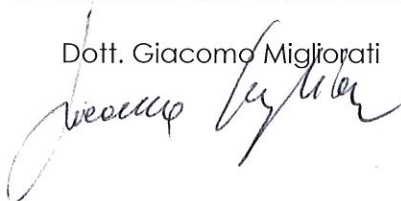 Dott. Giacomo Migliorati
Giacomo Migliorati